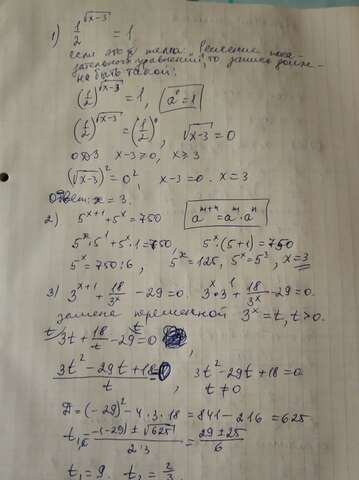 1) 1/2^√(x-3) = 1,
если это в темпа: "Решение пока-
зательного уравнений", то запись долж-
на быть такой:
(1/2)^√(x-3) = 1, a⁰ = 1
(1/2)^√(x-3) = (1/2)⁰, √(x-3) = 0
одз x-3≥0, x≥3
(√(x-3))² = 0², x-3=0. x=3
Ответ: x = 3.
2) 5^(x+1) + 5^x = 750 a^(m+n) = a^m · a^n
5^x · 5¹ + 5^x · 1 = 750, 5^x · (5+1) = 750
5^x = 750 : 6, 5^x = 125, 5^x = 5³, x = 3
3) 3^(x+1) + 18/3^x - 29 = 0. 3^x · 3¹ + 18/3^x - 29 = 0.
замена переменной 3^x = t, t > 0.
t/ 3t + 18/t - 29 t/ = 0,
(3t² - 29t + 18)/t = 0, 3t² - 29t + 18 = 0
t ≠ 0
D = (-29)² - 4 · 3 · 18 = 841 - 216 = 625.
t₁,₂ = (-(-29) ± √625)/(2·3) = (29 ± 25)/6
t₁ = 9. t₂ = 2/3.